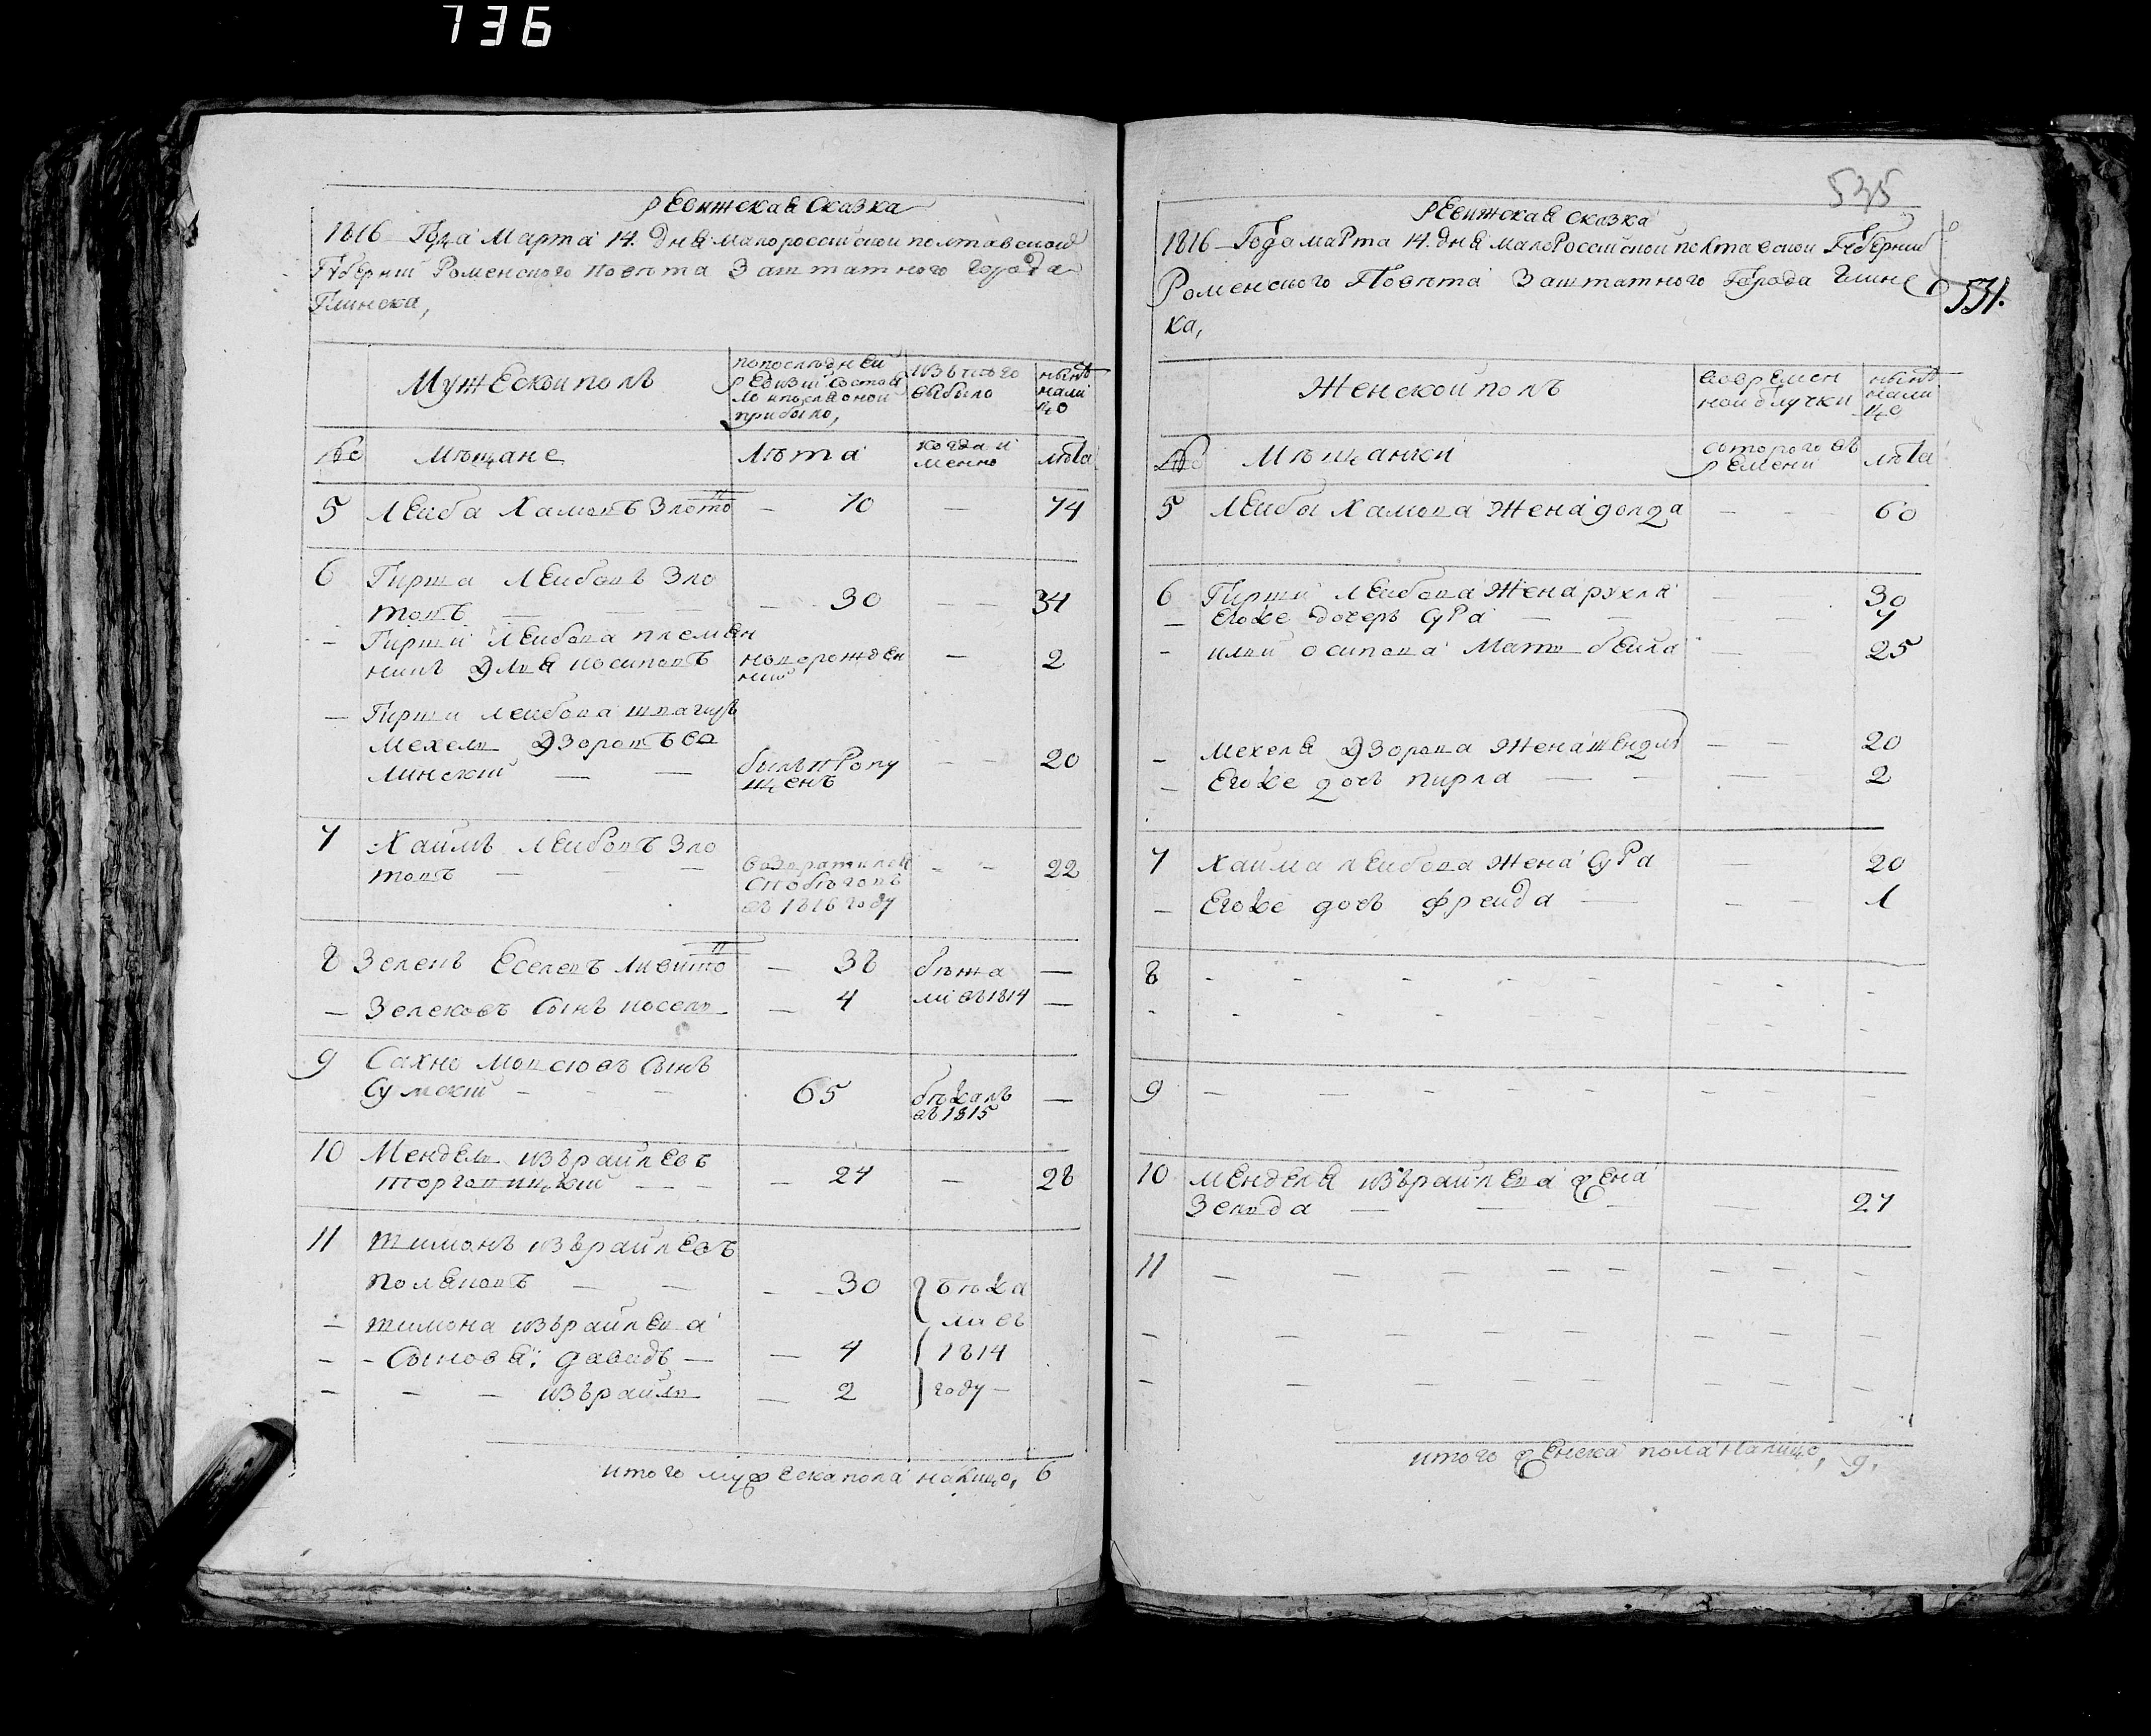 736
Ревижская Сказка
1816 Года Марта 14. дня малороссийской полтавской
Губернии Роменского повѣта Заштатного города
Глинска,
Мужеской полъ
попослѣдней
ревизии состоя
ло ипослѣоной
прибыло,
изътого
выбыло
нынѣ
нали
цо
№
Мѣщане
Лѣта
когда и
менно
лѣта
5 Леиба Хамовъ Злото — 70 — 74
6 Гирша Леибовъ Зло
товъ — — 30 — — 34
— Гирши Леибова племен
никъ Элья иосиповъ новорожден
ний — 2
— Гирши Леибова швагиръ
Мехель Эзоровъ Во
линский — — былъ пропу
щенъ — — 20
7 Хаимъ Леибовъ Зло
товъ — — — возвратился
спобѣговъ
въ 1816 году — — 22
8 Зеленъ Еселевъ Ливито — 38 бѣжа —
— Зелековъ Сынъ иосель — 4 ли въ 1814 —
9 Сахно Мовсювъ Сынъ
Сумский — — — 65 бѣжалъ
въ 1815 —
10 Мендель изъраилевъ
торговицкий — — — 24 — 28
11 Шимонъ изъраилевъ
поляковъ — — — 30 бѣжа
— Шимона изъраилева ли въ
— Сыновья: давидъ — — 4 1814
— — — изъраиль — 2 году —
итого мужескапола налицо, 6
535
Ревижская сказка
1816 Года марта 14. дня малороссийской полтавской Губернии
Роменского Повѣта Заштатного Города Глинс
ка,
531.
Женской полъ
вовремен
ной отлучки
нынѣ
нали
цо
№
Мѣщанки
скоторого въ
ремени
лѣта
5 Леибы Хамова Жена долда — — — 60
6 Гирши Леибова Жена рухля — — 30
— Егоже дочерь Сура — — — — 7
— ильи осипова Мать беила — — 25
— Мехеля Эзорова Жена шендля — — 20
— Егоже дочь пирла — — — 2
7 Хаима леибова Жена Сура — 20
— Егоже дочь фреида — — — 1
8 - - - - - - - -
- - - - - - - - -
9 - - - - - - - -
10 Менделя изъраилева жена
Зельда — — — — 27
11 — — — — — — — —
— — — — — — — — —
— — — — — — — — —
итого женска пола налицо, 9.